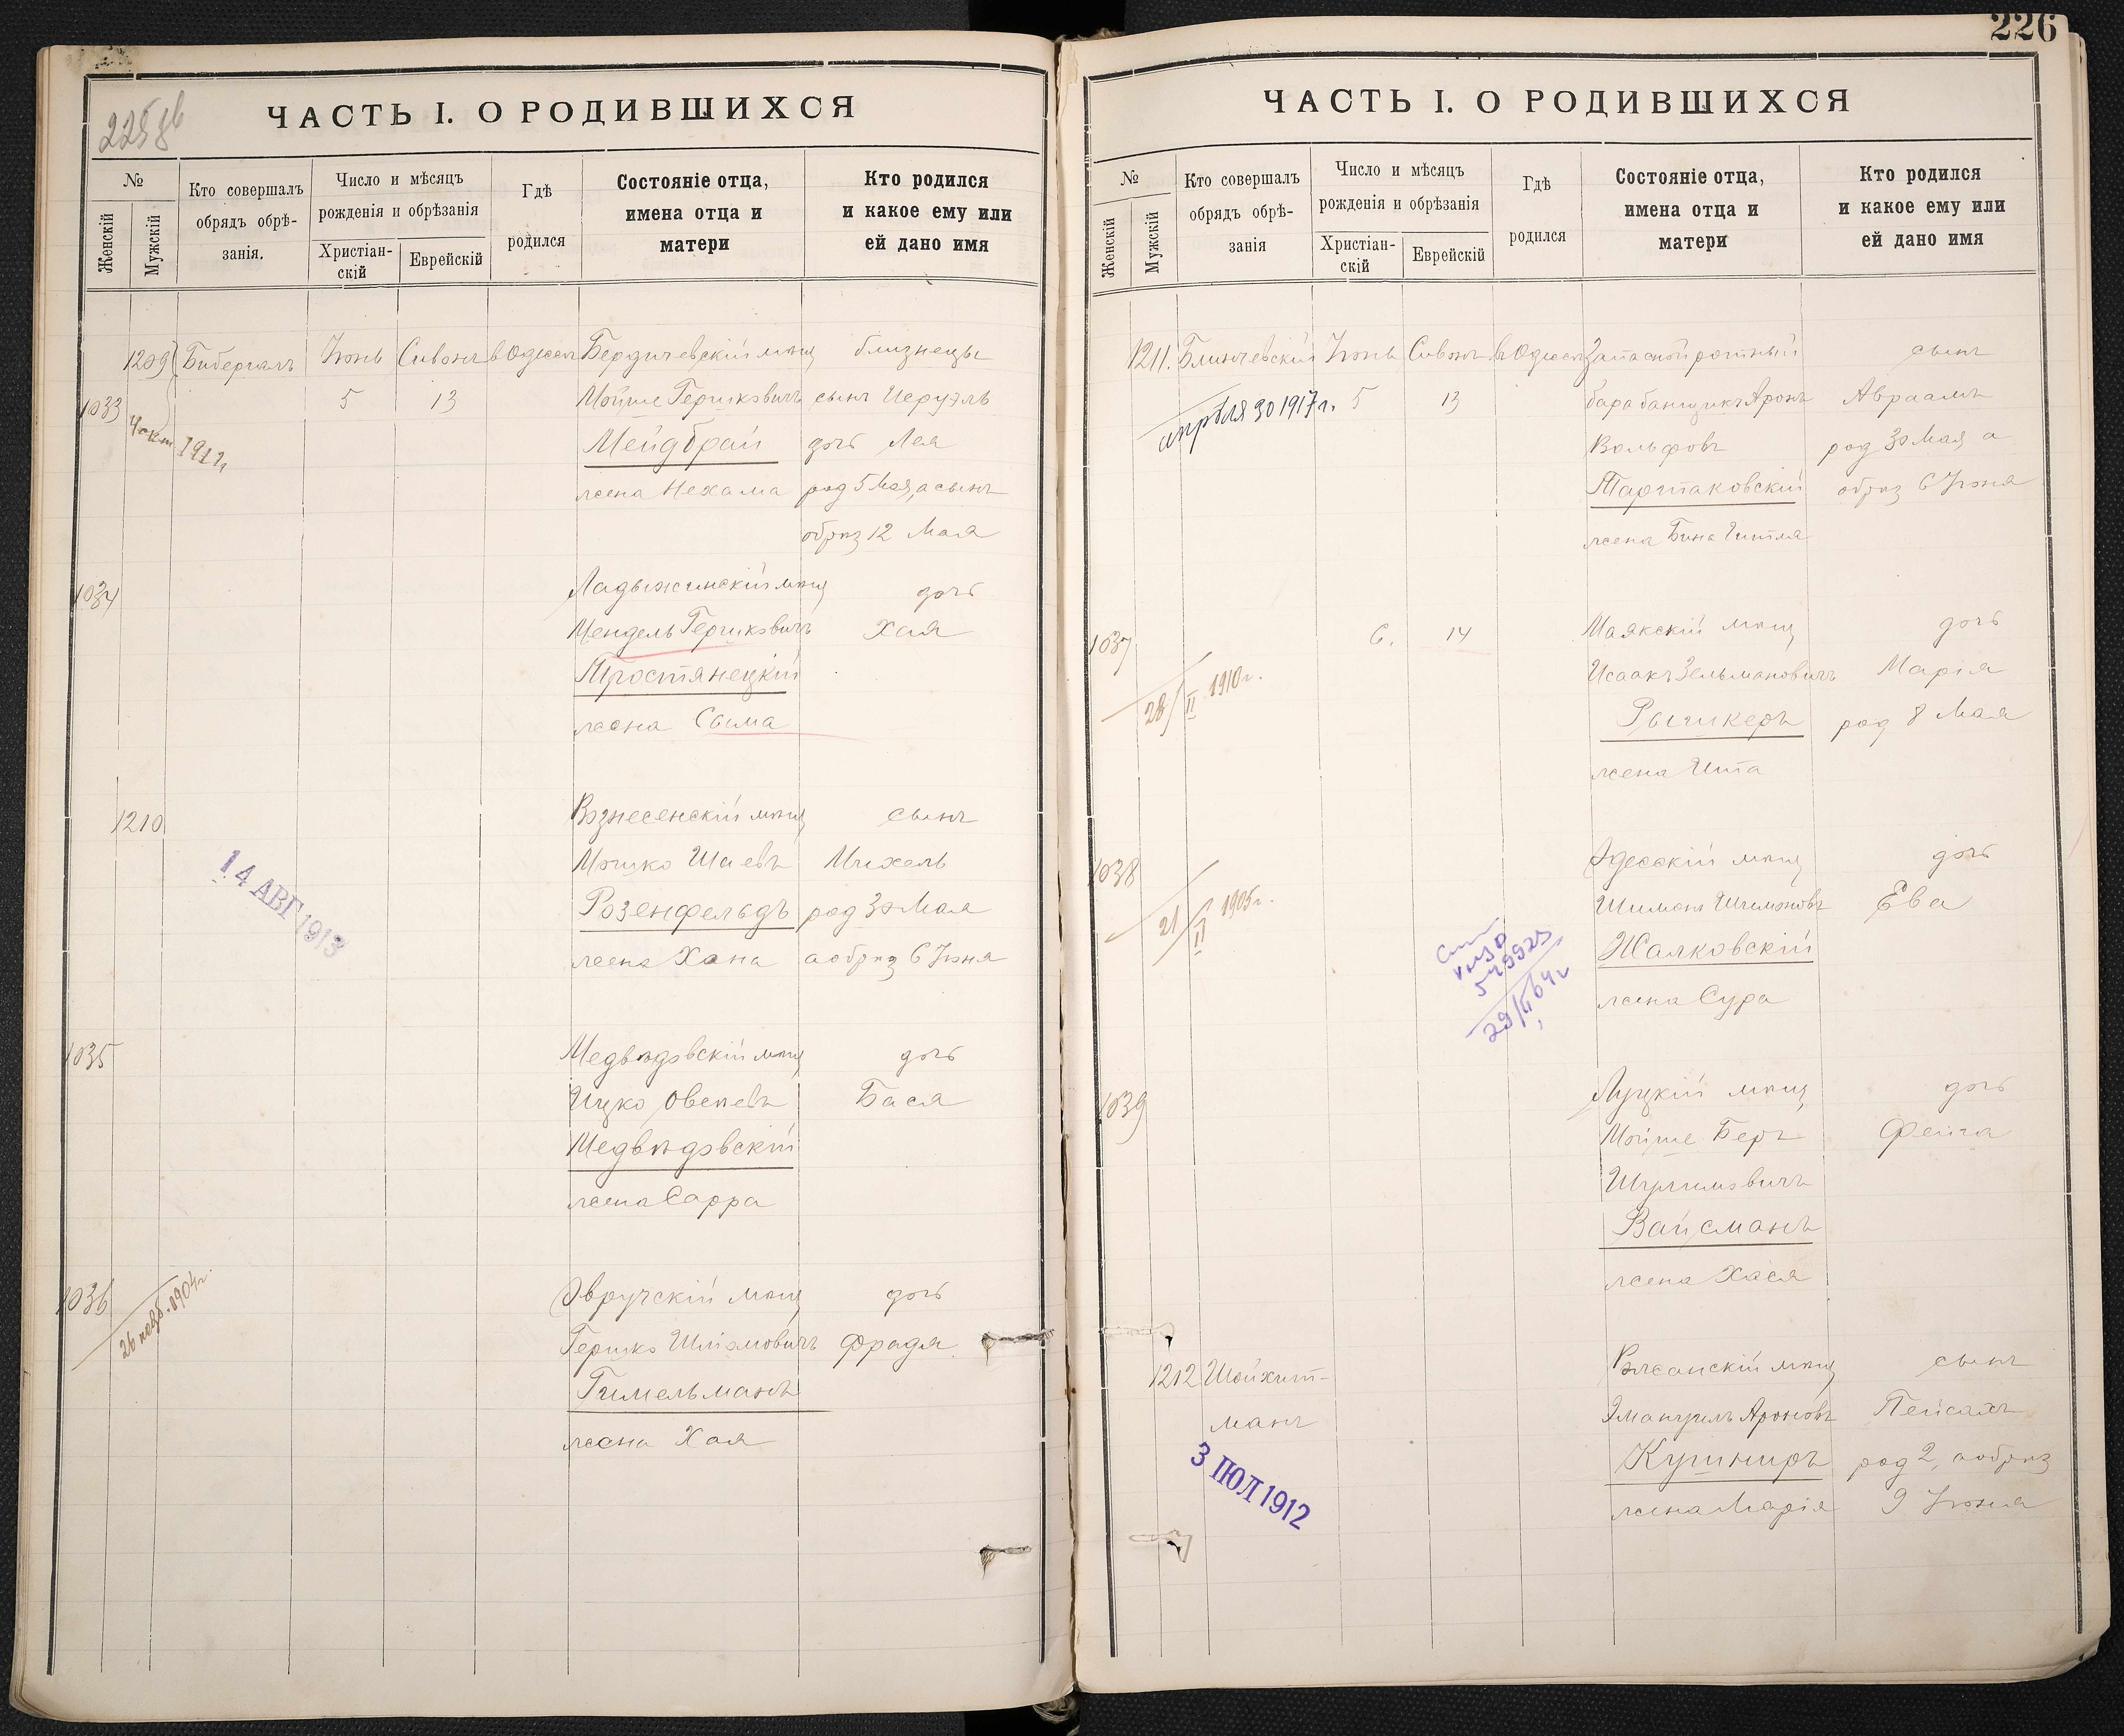 225 об
ЧАСТЬ I. О РОДИВШИХСЯ
№
Женскій
Мужскій
Кто совершалъ
обрядъ обрѣ-
занія.
Число и мѣсяцъ
рожденія и обрѣзанія
Христіан-
скій
Еврейскій
Гдѣ
родился
Состояніе отца,
имена отца и
матери
Кто родился
и какое ему или
ей дано имя
1209 Бибергалъ Іюнь Сивонъ в Одессѣ Бердичевскій мѣщ близнецы
1033 5 13 Мойше Гершковичъ сынъ Иеруэль
1912 Мейдбрай дочь Лея
жена Нехама род 5 Мая, а сынъ
обрѣз 12 Мая
1034 Ладыжинскій мѣщ дочь
Мендель Гершковичъ Хая
Тростянецкій
жена Сыма
1210 Вознесенскій мѣщ сынъ
Мошко Шаевъ Михель
14 АВГ 1913
Розенфельдъ род 30 Мая
жена Хана а обрѣз 6 Іюня
1035 Медвѣдовскій мѣщ дочь
Ицко Овсеевъ Бася
Медвѣдовскій
жена Сарра
1036 Овручскій мѣщ дочь
26 нояб. 1904г.
Гершко Шліомовичъ Фрадя
Гимельманъ
жена Хая
226
ЧАСТЬ I. О РОДИВШИХСЯ
№
Женскій
Мужскій
Кто совершалъ
обрядъ обрѣ-
занія
Число и мѣсяцъ
рожденія и обрѣзанія
Христіан-
скій
Еврейскій
Гдѣ
родился
Состояніе отца,
имена отца и
матери
Кто родился
и какое ему или
ей дано имя
1211. Блинчевскій Іюнь Сивонъ в Одессѣ Запасной ротный сынъ
апрѣля 30 1917г. 5 13 барабанщикъ Аронъ Авраамъ
Вольфовъ род 30 Мая а
Тартаковскій обрѣз 6 Іюня
жена Бина Гитля
1037 6. 14 Маякскій мѣщ дочь
28/II 1910г.
Исаакъ Зельмановичъ Марія
Рышкеръ род 8 Мая
жена Ита
1038 Одесскій мѣщ дочь
21/II 1905г.
Шимонъ Шимоновъ Ева
Жалковскій
29/II 64г
жена Сура
1039 Луцкій мѣщ дочь
Мойше Беръ Фейга
Шулимовичъ
Вайсманъ
жена Хася
1212 Шойхет-
манъ
3 ІЮЛ 1912
мѣщ сынъ
Эмануилъ Ароновъ Пейсахъ
Кушниръ род 2, а обрѣз
жена Марія 9 Іюня